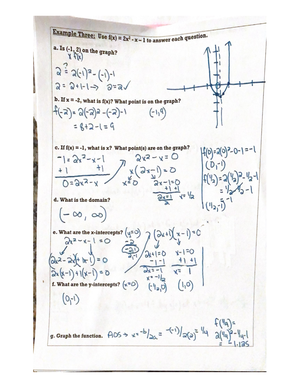 Example Three: Use f(x) = 2x² - x - 1 to answer each question.
a. Is (-1, 2) on the graph?
x f(x)
2 ≟ 2(-1)² - (-1) - 1
2 = 2 + 1 - 1 → 2 = 2 ✓
b. If x = -2, what is f(x)? What point is on the graph?
f(-2) = 2(-2)² - (-2) - 1
= 8 + 2 - 1 = 9
c. If f(x) = -1, what is x? What point(s) are on the graph?
-1 = 2x² - x - 1
+1 +1
0 = 2x² - x
2x² - x = 0
x(2x - 1) = 0
x = 0 2x - 1 = 0
+1 +1
x = 1/2
f(0) = 2(0)² - 0 - 1 = -1
(0, -1)
d. What is the domain?
(-∞, ∞)
e. What are the x-intercepts? (y=0)
2x² - x - 1 = 0
(2x+1)(x-1) = 0
2x+1=0 x-1=0
-1 -1 +1 +1
2x = -1 x = 1
(1,0)
f. What are the y-intercepts? (x=0)
(0,-1)
g. Graph the function.
AOS → x = -b/2a = -(-1)/2(2) = 1/4